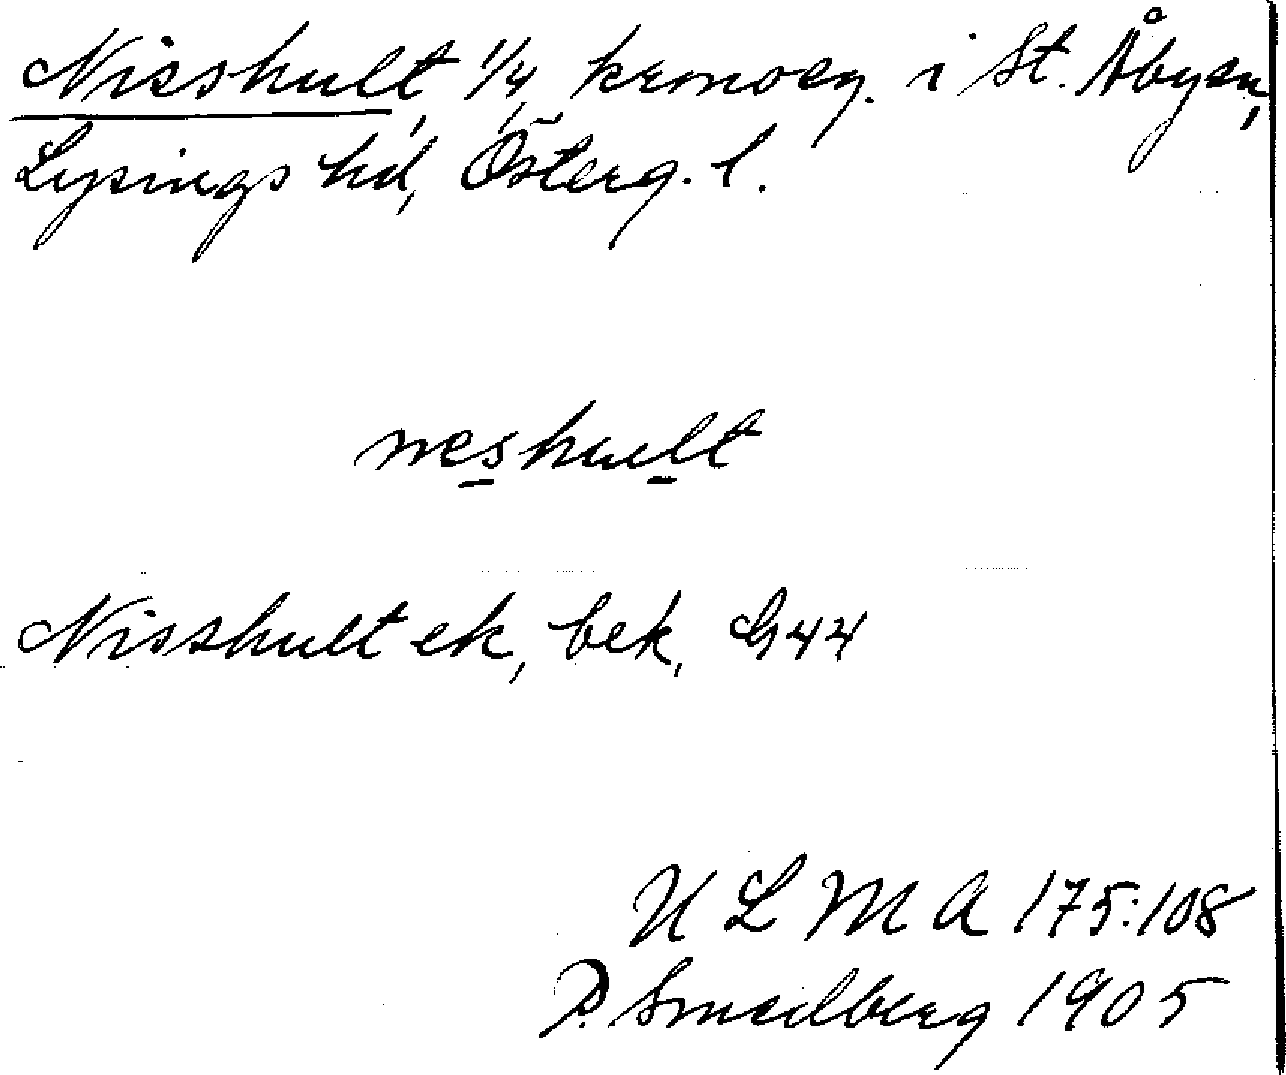 Nisshult, 1/4, kronoeg. i St. Åbysn,
Lysings hd, Österg. l.
neshult
Nisshult ek, bek, G44
ULMA 175:108
P. Smedberg 1905